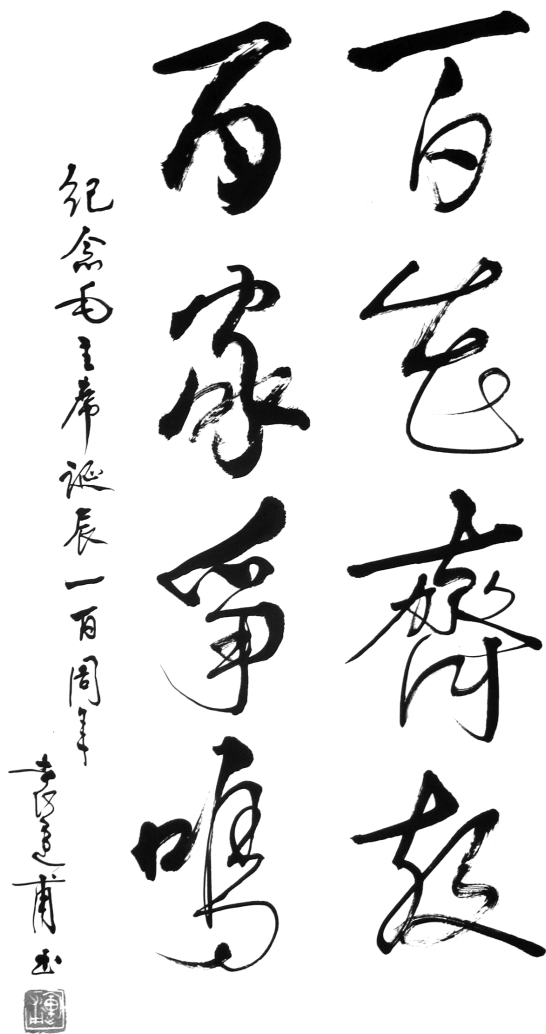 百花齊放
百家爭鳴
紀念毛主席誕辰一百周年
袁蓬甫书